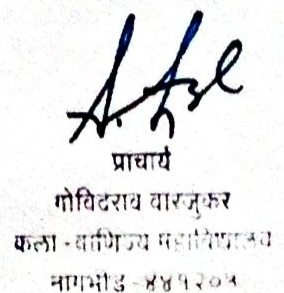 प्राचार्य
गोविंदराव वारजुकर
कला - वाणिज्य महाविद्यालय
नागभीड - ४४१२०५